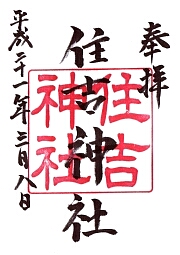 奉拝
住吉神社
住吉
神社
平成二十一年三月八日